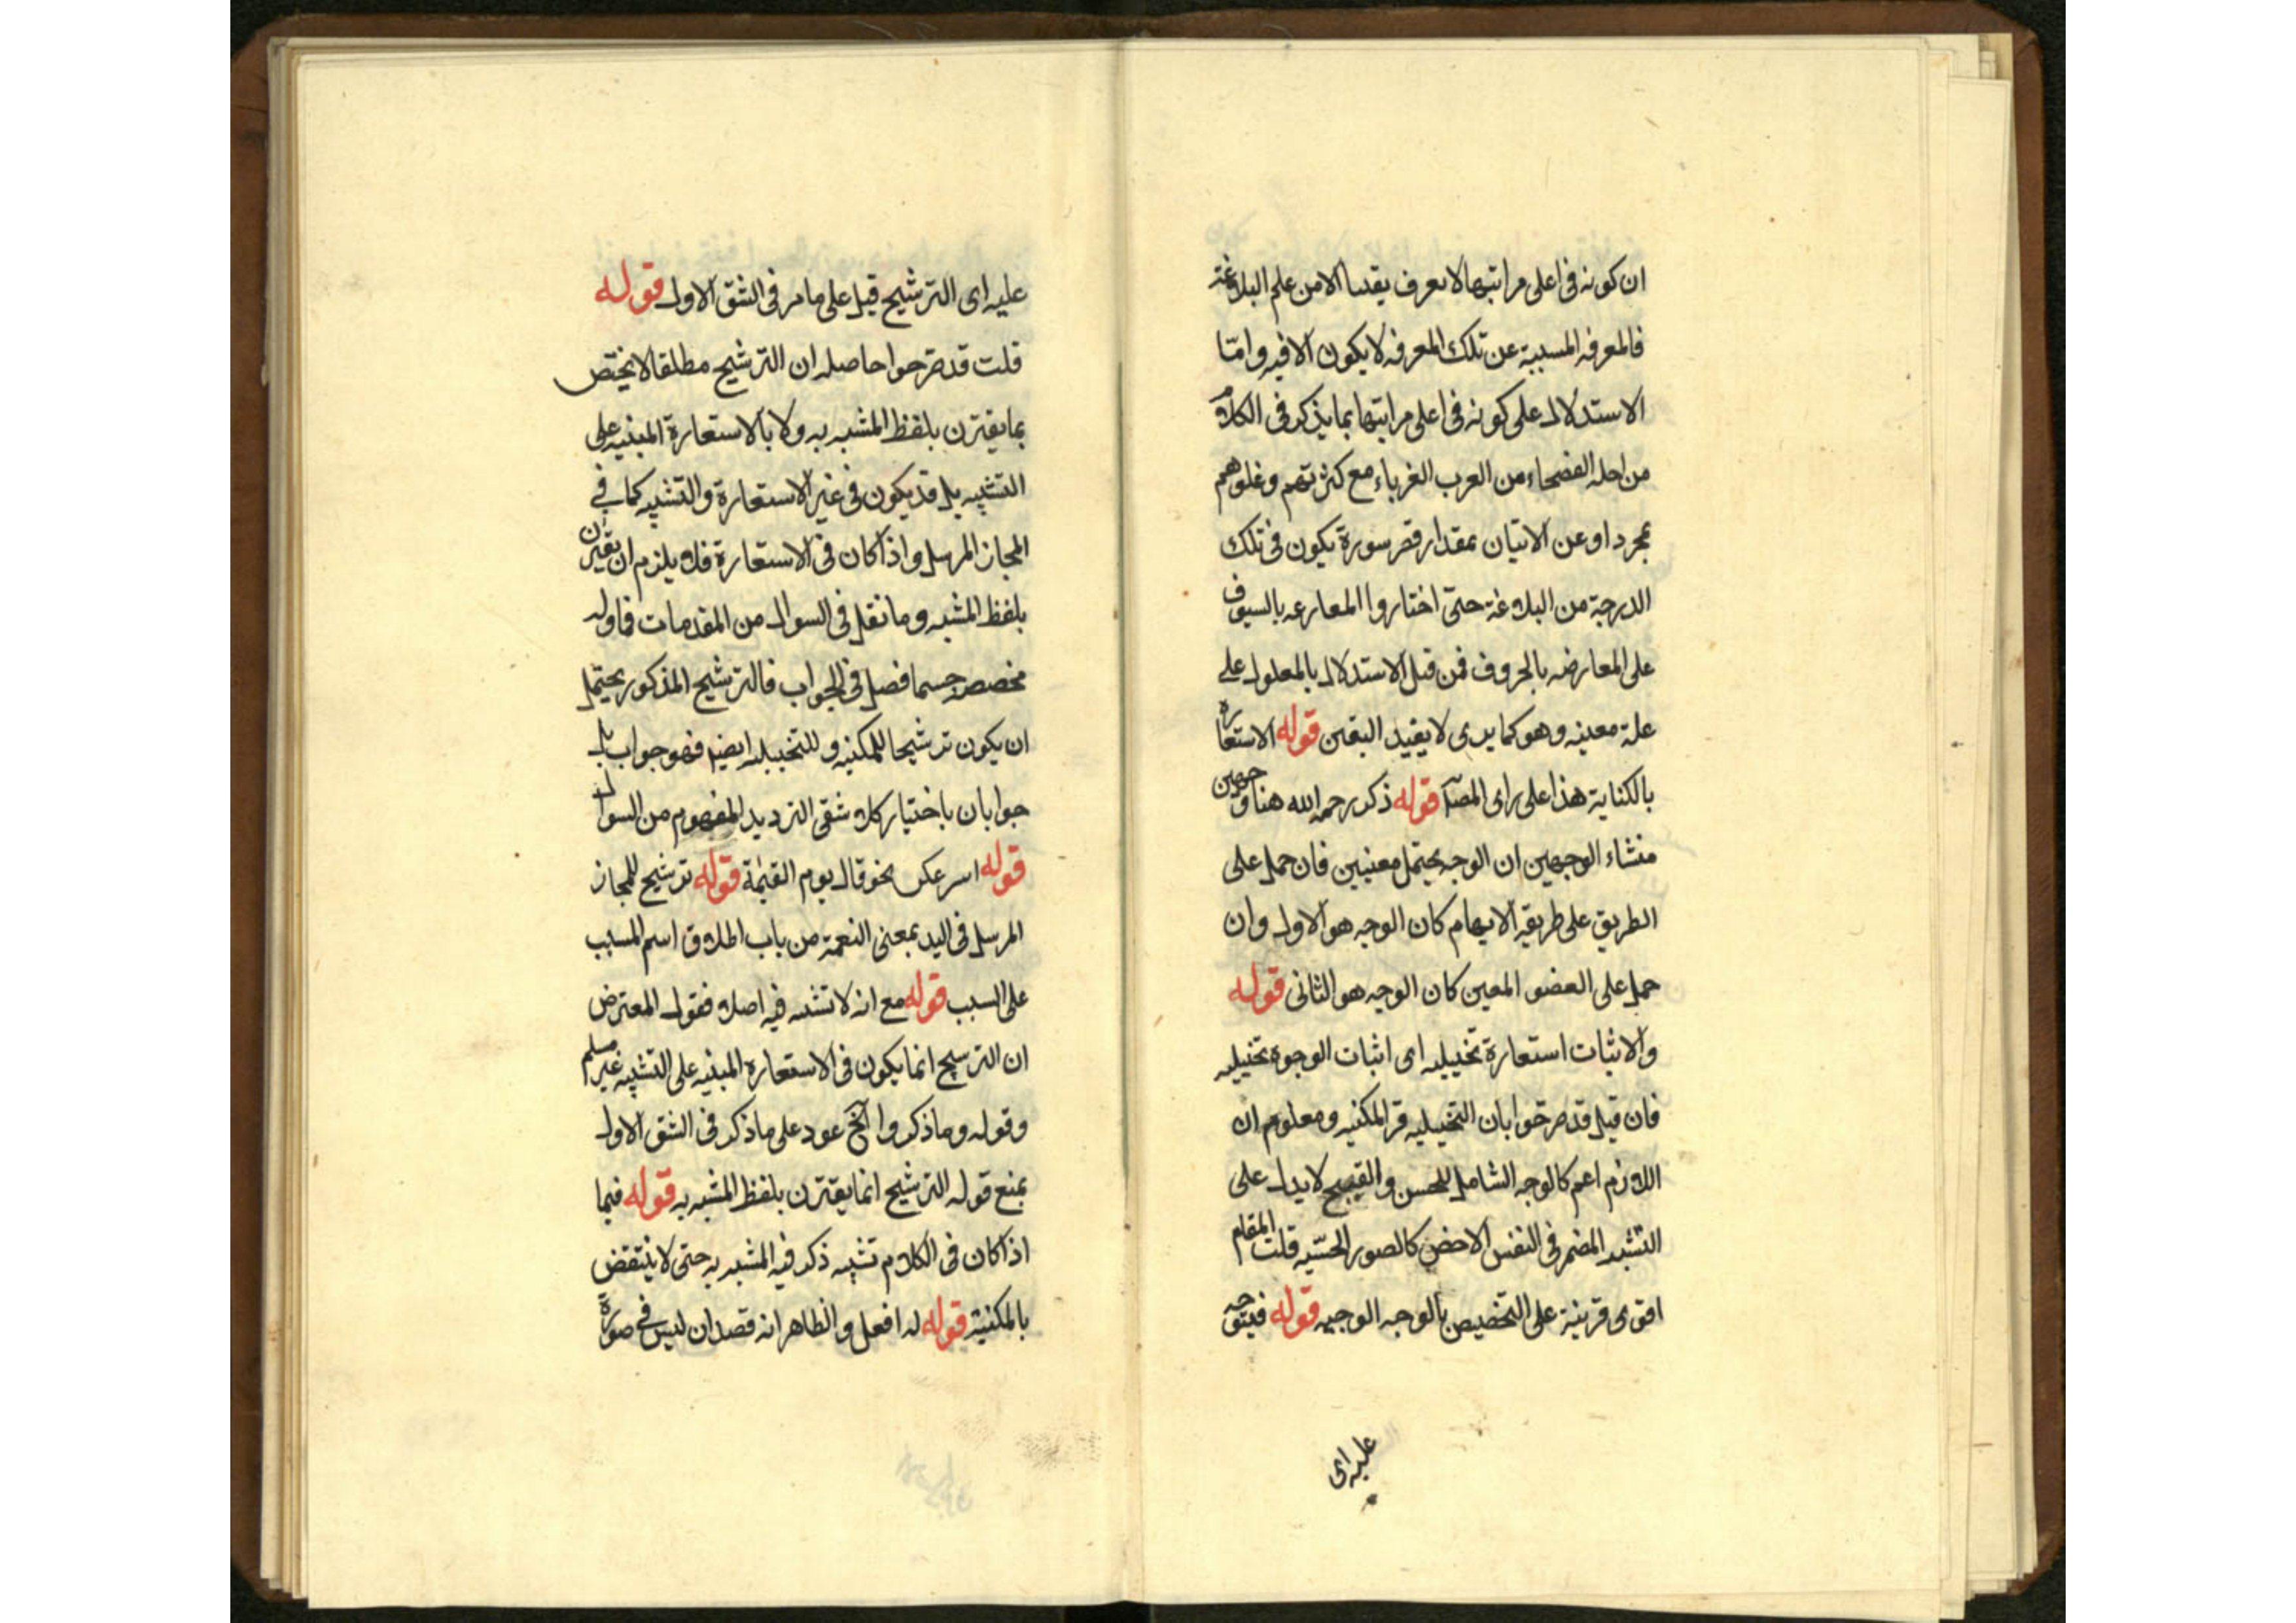 ان كونه فى اعلى مراتبها لا يعرف يقينا الا من علم البلاغة
فالمعرفه المسببة عن تلك المعرفه لا يكون الا فيه وامّا
الاستدلال على كونه فى اعلى مراتبها بما يذكر فى الكلام
من احله الفصحاء من العرب الغرباء مع كثرتهم وغلوهم
عن الاتيان بمقدار اقصر سورة يكون فى تلك
الدرجة من البلاغة حتى اختاروا المقارعه بالسيوف
على المعارضه بالحروف فمن قبل الاستدلال بالمعلول على
علة معينه وهو كما يرى لا يفيد اليقين قوله الاستعارة
بالكناية هذا على راى المصـ قوله ذكر رحمه الله هنا وجهين
منشاء الوجهين ان الوجه يحتمل معنيين فان حمل على
الطريق على طريقه الايهام كان الوجه هو الاول وان
حمل على العضو المعين كان الوجه هو الثانى قوله
والاثبات استعارة تخييليه اى اثبات الوجوه تخييليه
فان قيل قد صرحوا بان التخييليه قر المكنيه ومعلوم ان
اللازم اعم كالوجه الشامل للحسن والقبيح لا يدل على
التشبيه المضمر فى النفس الاخص كالصور الحسّيه قلت المقام
اقوى قرينة على التخصيص بالوجه الوجيه قوله فيتوجه
عليه اى
عليه اى الترشيح قيل على ما مر فى الشق الاول قوله
قلت قد صرحوا حاصله ان الترشيح مطلقا لا يختص
بما يقترن بلفظ المشبه به ولا بالاستعارة المبنيه على
التشبيه بل قد يكون فى غير الاستعارة والتشبيه كما فى
المجاز المرسل واذا كان فى الاستعارة فلا يلزم ان يقترن
بلفظ المشبه وما نقل فى السوال من المقدمات فماوله
مخصص حسبما فصل فى الجواب فالترشيح المذكور يحتمل
ان يكون ترشيحا للمكنيه وللتخييليه ايضا فهو جواب بل
جوابان باختيار كلا شقى الترديد المفهوم من السوال
قوله اسرعكن نحو قال يوم القيٰمة قوله ترشيح للمجاز
المرسل فى اليد بمعنى النعمة من باب اطلاق اسم المسبب
على السبب قوله مع انه لا تشبيه فيه اصلا فقول المعترض
ان الترشيح انما يكون فى الاستعارة المبنيه على التشبيه غير مسلم
وقوله وما ذكروا الخ عود على ما ذكر فى الشق الاول
بمنع قوله الترشيح انما يقترن بلفظ المشبه به قوله فيما
اذا كان فى الكلام تشبيه ذكر فيه المشبه به حتى لا ينتقض
بالمكنية قوله له افعل والظاهر انه قصد ان ليس فى صورة